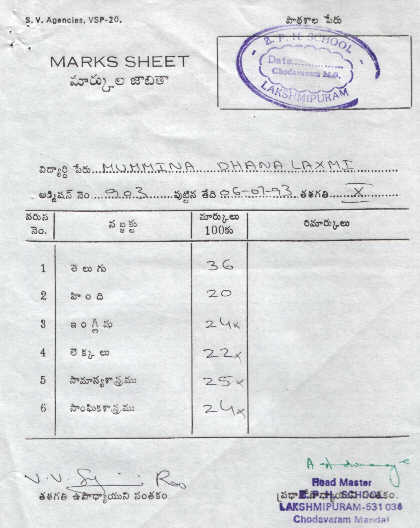 S. V. Agencies, VSP-20.
పాఠశాల పేరు
MARKS SHEET
మార్కుల జాబితా
Z. P. H. SCHOOL
Date
Chodavaram M.O.
LAKSHMIPURAM
విద్యార్థి పేరు MUMMINA DHANA LAXMI
అడ్మిషన్ నెం 903 పుట్టిన తేది 06-07-93 తరగతి X
వరుస నెం. సబ్జక్టు మార్కులు 100కు రిమార్కులు
1 తెలుగు 36
2 హింది 20
3 ఇంగ్లీషు 24x
4 లెక్కలు 22x
5 సామాన్యశాస్త్రము 25x
6 సాంఘికశాస్త్రము 24x
తరగతి ఉపాధ్యాయుని సంతకం
ప్రధానోపాధ్యాయుని సంతకం.
Head Master
Z. P. H. SCHOOL
LAKSHMIPURAM-531 036
Chodavaram Mandal